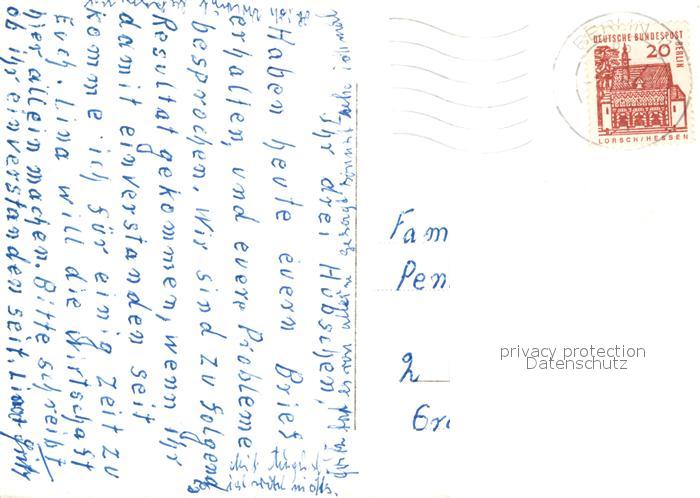 Ihr drei Hübschen,
Haben heute euern Brief
erhalten, und euer Probleme
besprochen. Wir sind zu folgend
Resultat gekommen, wenn ihr
damit einverstanden seit
komme ich für einig Zeit zu
Euch. Lina will die Wirtschaft
hier allein machen. Bitte schreibt
ob ihr einverstanden seit.
DEUTSCHE BUNDESPOST
BERLIN
20
LORSCH/HESSEN
BERLIN
Fam
Pen
2
privacy protection
Datenschutz